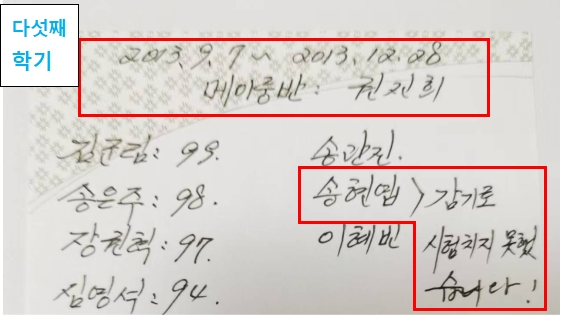 다섯째
학기
2013. 9. 7 ~ 2013. 12. 28
메아롱반: 권진희
김균림: 99.
송은주: 98.
장권혁: 97.
심명석: 94.
송관진.
송현엽 > 감기로
이혜빈 시험치지 못했
습니다!